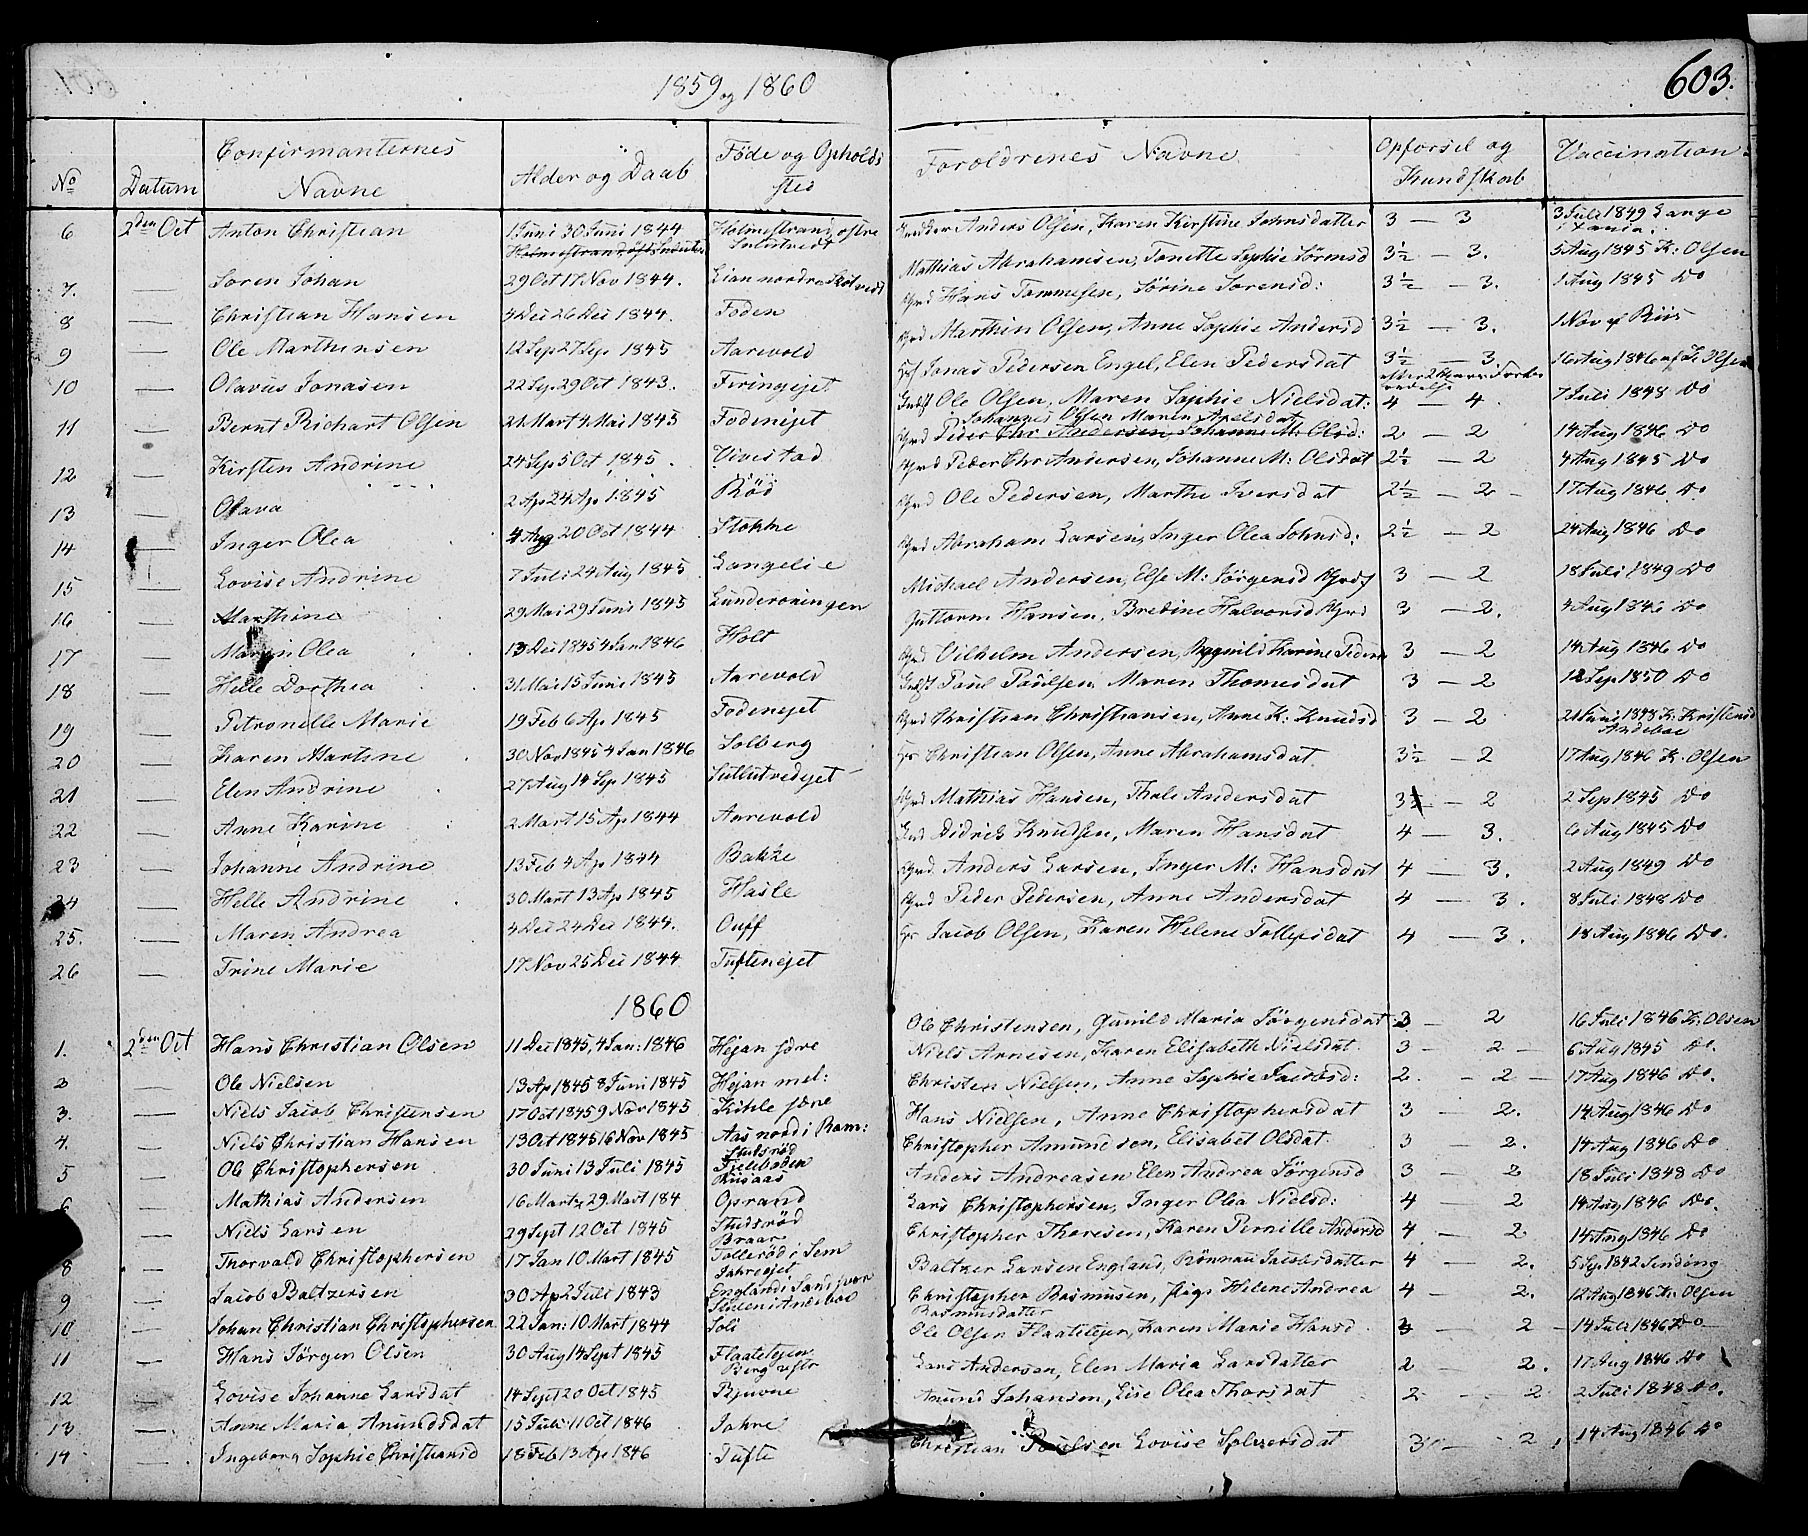 1859 og 1860
603.
No Datum Confirmanternes Navne Alder og Daab Føde og Opholds sted Foroldrenes Navne Opforsel og Kundskab Vaccination
6 2den Oct Anton Christian 1 Juni 30 Juni 1844 Holmestrand, østre Anders Olsen, Karen Kirstine Johnsdatter 3 — 3 3 Juli 1849 Lange
Mathias Abrahamsen, Tonette Sophie 3½ — 3. 5 Aug 1845 K: Olsen
7. — Soren Johan 29 Oct 17 Nov 1844. Lian nordre Hans Tommesen, Sörine Sorensd: 3½ — 3. 1 Aug 1845 Do
8 — Christian Hansen 4 Dec 26 Dec 1844. Foden Marthin Olsen, Anne Sophie Andersd 3½ — 3. 1 Nov af Riis
9 — Ole Marthinsen 12 Sep 27 Sep 1845 Aarevold Jonas Pedersen Engel, Elen Pedersdat 3½ — 3 16 Aug 1846 af K: Olsen
10 — Olavus Jonasen 22 Sep 29 Oct 1843. Ole Olsen, Maren Sophie Nielsdat: 4 — 4. 7 Juli 1848 Do
Johannes Olsen Maren Axelsdat
11 — Bernt Richart Olsen 21 Mart 4 Mai 1845 Fodenejet Peder Chr Andersen, Johanne M: Olsd: 2 — 2 14 Aug 1846 Do
12 — Kirsten Andrine 24 Sep 5 Oct 1845. Vivestad Peder Chr Andersen, Johanne M: Olsdat 2½ — 2 4 Aug 1845 Do
13 — Olava 2 Ap 24 Ap 1845 Röd Ole Pedersen, Marthe Iversdat 2½ — 2 — 17 Aug 1846 Do
14 — Inger Olea 4 Aug 20 Oct 1844 Stokke Abraham Larsen, Inger Olea Johnsd: 2½ — 2 24 Aug 1846 Do
15 — Lovise Andrine 7 Juli 24 Aug 1845 Langelie Michael Andersen, Else M: Jörgensd 3 — 2 18 Juli 1849 Do
16 — Marthine 29 Mai 29 Juni 1845 Guttorm Hansen, Bredine Halvorsd 3 — 2. 4 Aug 1846 Do
17 — Maren Olea 13 Dec 1845 4 Jan 1846 Holt Vilhelm Andersen, Ragnild Karine Peders 3 — 2 14 Aug 1846 Do
18 — Helle Dorthea 31 Mai 15 Juni 1845 Aarevold Paul Paulsen Maren Thomesdat 3 — 2 12 Sep 1850 Do
19 — Petronelle Marie 19 Feb 6 Ap 1845 Fodenejet Christian Christiansen, Anne K: Knudsd 3 — 2 21 Juni 1848 K: Kristensd
Andeboe
20 — Karen Martine 30 Nov 1845 4 Jan 1846 Solberg Christian Olsen, Anne Abrahamsdat 3½ — 2 17 Aug 1846 K: Olsen
21 — Elen Andrine 27 Aug 14 Sep 1845 Mathias Hansen, Thale Andersdat 3½ — 2 2 Sep 1845 Do
22 — Anne Karine 2 Mart 15 Ap 1844 Aarevold Didrich Knudsen, Maren Hansdat 4 — 3. 6 Aug 1845 Do
23 — Johanne Andrine 13 Feb 4 Ap 1844 Bakke Anders Larsen, Inger M: Hansdat 4 — 3. 2 Aug 1849 Do
24 — Helle Andrine 30 Mart 13 Ap 1845 Hasle Peder Petersen, Anne Andersdat 4 — 3. 8 Juli 1848 Do
25. — Maren Andrea 4 Dec 24 Dec 1844. Ouff Jacob Olsen, Karen Helene Tollefsdat 4 — 3. 18 Aug 1846 Do.
26 — Trine Marie 17 Nov 25 Dec 1844 Tuftenejet
1860
1. 2den Oct Hans Christian Olsen 11 Dec 1845, 4 Jan: 1846 Hejan søre Ole Christensen, Gunild Maria Jörgensdat 3 — 2 16 Juli 1846 K: Olsen
2 — Ole Nielsen 13 Ap 1845 8 Juni 1845 Hejan mel: Niels Arnesen, Karen Elisabeth Nielsdat. 3 — 2 — 6 Aug 1845 Do.
3. — Niels Jacob Christensen 17 Oct 1845 9 Nov 1845 Kihle søre Christen Nielsen, Anne Sophie Jacobsd: 2. — 2 — 17 Aug 1846 Do.
4. — Niels Christian Hansen 13 Oct 1845 16 Nov 1845 Aas nord i Ram: Hans Nielsen, Anne Christophersdat 3 — 2. 14 Aug 1846 Do
5 — Ole Christophersen 30 Juni 13 Juli 1845 Stulsröd Fjeleboden Christopher Amundsen, Elisabet Olsdat. 3 — 2. 14 Aug 1846 Do
6 — Mathias Andersen 16 Mart 29 Mart 184 Oprand Anders Andreasen Elen Andrea Jörgensd 3 — 2 18 Juli 1848 Do
— Niels Larsen 29 Sept 12 Oct 1845 Stulsröd Braar Lars Christophersen, Inger Olea Nielsd: 4 — 2 14 Aug 1846 Do.
8 — Thorvald Christophersen 17 Jan 10 Mart 1845 Tolleröd i Sem Jahreejet Christopher Thoresen, Karen Pernille Andersd 4 — 2 14 Aug 1846 Do
9 — Jacob Baltzersen 30 Ap 2 Juli 1843 England i Sandsvær Baltzer Larsen England, Rönnau Jacobsdatter 4 — 2. 5 Sep 1842 Sinding
10 — Johan Christian Christophersen 22 Jan: 10 Mart 1844 Soli Christopher Rasmusen, Helene Andrea Rasmusdatter 4 — 2. 12 Aug 1846 K: Olsen
11 — Hans Jörgen Olsen 30 Aug 14 Sept 1845 Flaatetejen Ole Olsen Flaatetejen, Karen Marie Hansd 3 — 2 — 14 Juli 1846 Do
12 — Lovise Johanne Larsdat 14 Sept 20 Oct 1845 Berg østr Bjuvne Lars Andersen, Elen Maria Larsdatter 2 2. 17 Aug 1846 Do
13 — Anne Maria Amundsdat 15 Juli 11 Oct 1846 Jahre Amund Johansen, Lise Olea Thorsdat 2 — 2 2 Juli 1848 Do.
14 — Ingeborg Sophie Christiansd 18 Feb 13 Ap 1846 Tufte Christian Paulsen Lovise 3 — 2. 14 Aug 1846 Do